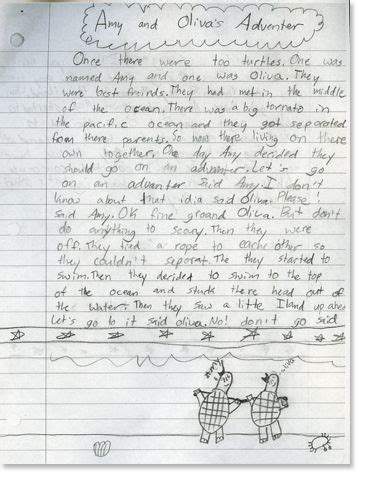 Amy and Oliva's Adventer
Once there were too turtles. One was
named Amy and one was Oliva. They
were best freinds. They had met in the middle
of the ocean. There was a big tornato in
the pacific ocean and they got separated
from there parents. So now there living on there
own together. One day Amy decided they
should go on an advanter. Let's go
on an advanter said Amy. I don't
know about that idia said Oliva. Please!
said Amy. OK fine ground Oliva. But don't
do anything to scary. Then they were
off. They tied a rope to each other so
they couldn't separat. The they started to
swim. Then they decided to swim to the top
of the ocean and stuck there head out of
the water. Then they saw a little Iland up
Let's go to it said oliva. No! don't go said
Amy
oliva